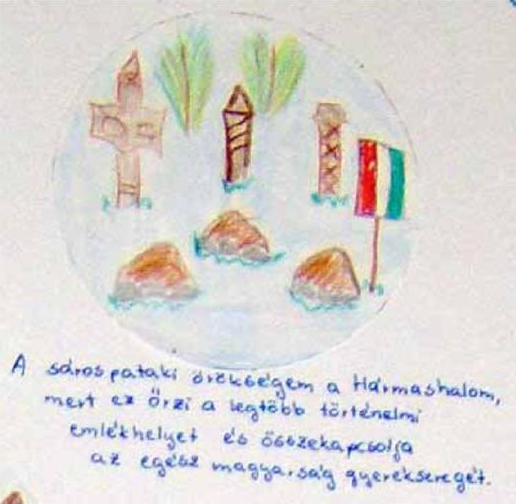 A sárospataki örökségem a Hármashalom,
mert ez Őrzi a legtöbb történelmi
emlékhelyet és összekapcsolja
az egész magyarság gyereksereget.